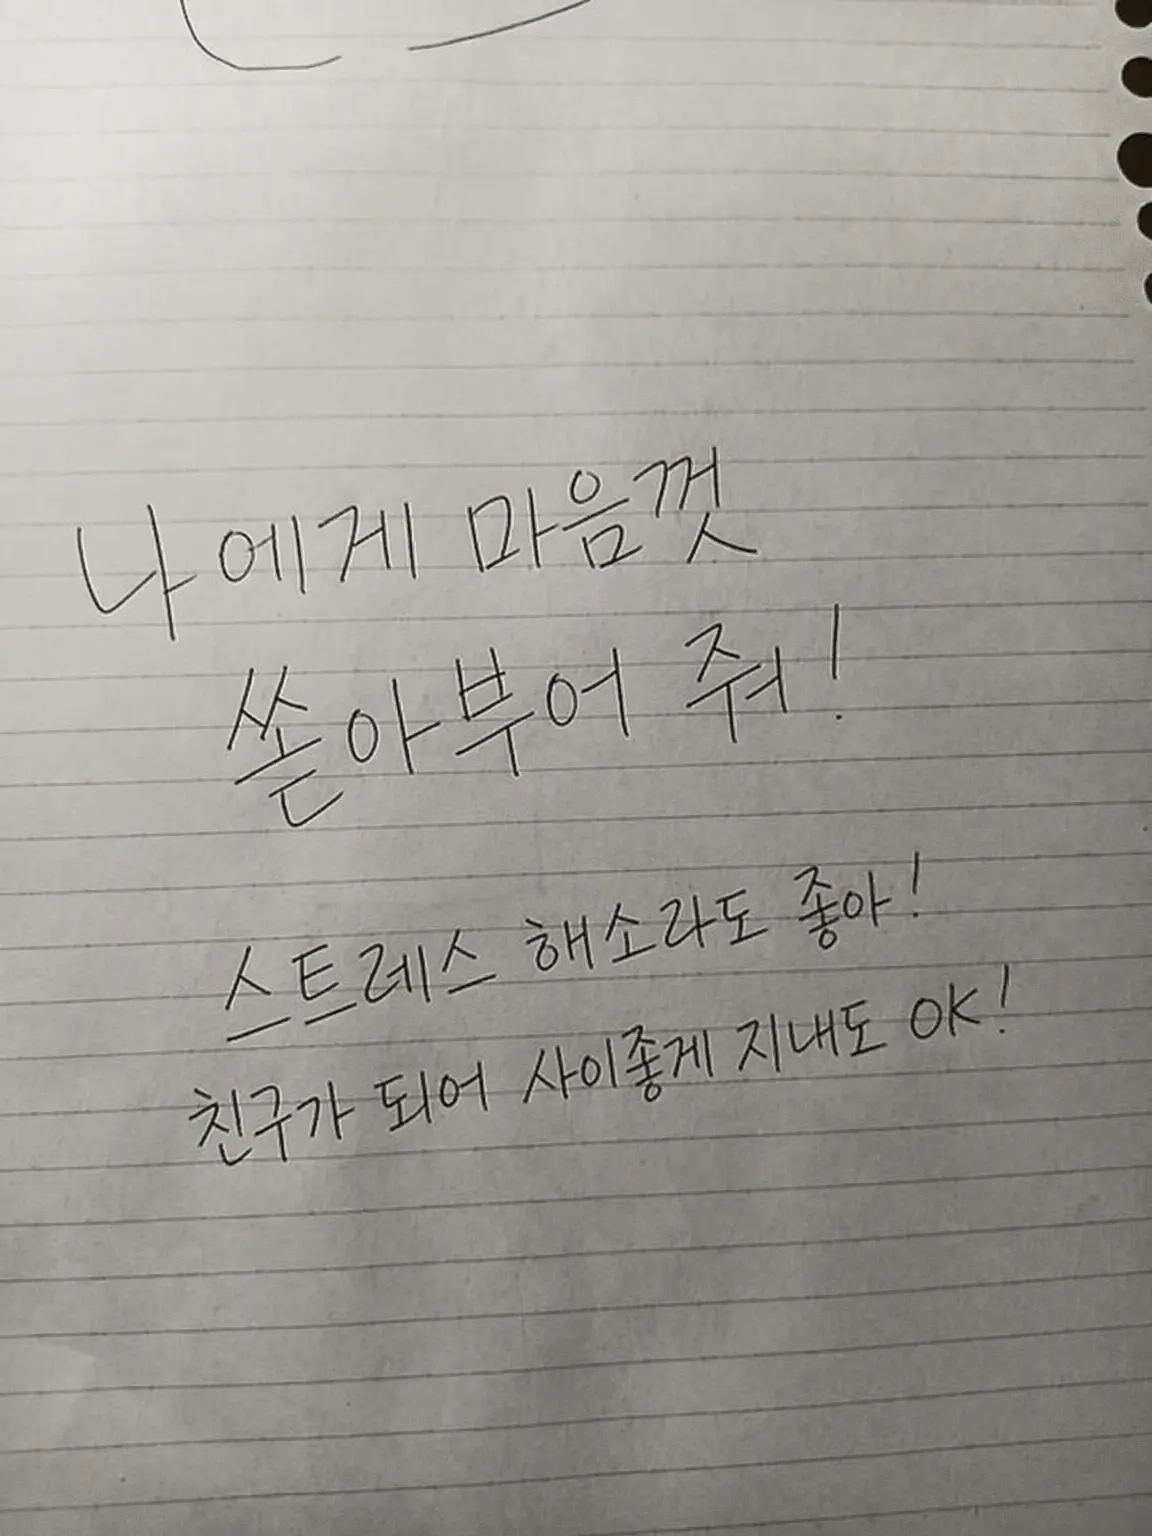 나에게 마음껏
쏟아부어 줘!
스트레스 해소라도 좋아!
친구가 되어 사이좋게 지내도 OK!